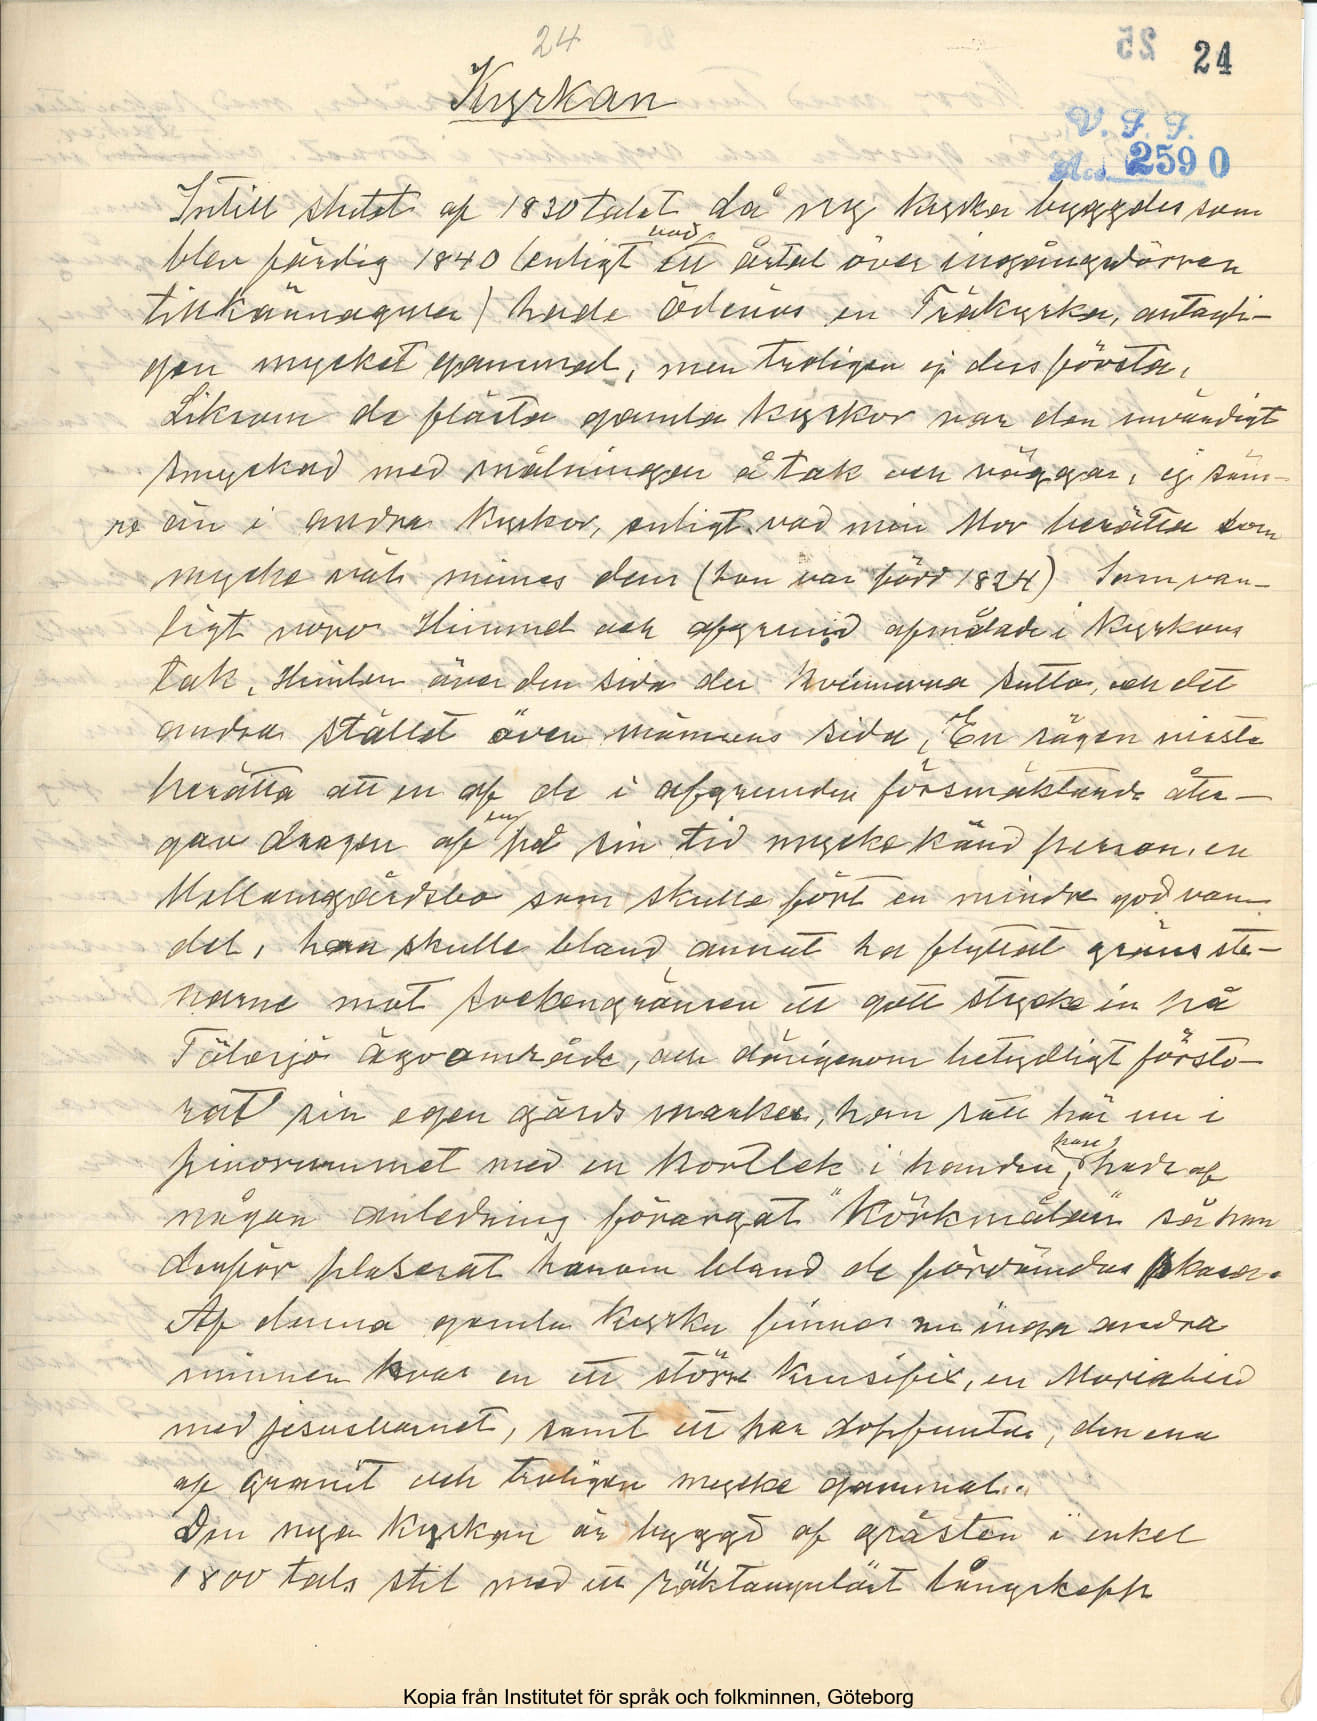 24
25 24
Kyrkan
V. F. F.
Acc. 2590
Intill slutet af 1830 talet då ny kyrka byggdes som
blev färdig 1840 (enligt vad ett årtal över ingångsdörren
tillkännagiver) hade Ödenäs en Träkyrka, antagli-
gen mycket gammal, men troligen ej dess första,
Liksom de flästa gamla kyrkor var den invändigt
smyckad med målningar å tak och väggar, ej säm-
re än i andra kyrkor, enligt vad min Mor berätta som
mycke väl minnes den (hon var född 1824) Som van-
ligt voro Himmel och afgrund afmålade i kyrkans
tak, Himlen över den sida der kvinnorna sutto, och det
andra stället över männens sida, En sägen visste
berätta att en af de i afgrunden försmäktande åter-
gav dragen af en på sin tid mycke känd person, en
Mellomgärdsbo som skulle fört en mindre god van-
del, han skulle bland annat ha flyttat gräns ste-
narne mot sockengränsen ett gott stycke in på
Tölesjö ägoområde, och därigenom betydligt försto-
rat sin egen gårds marker, han satt här nu i
pinorummet med en kortlek i handen, han hade af
någon anledning förargat "Körkmålan" så han
derför plaserat honom bland de fördömdas skara.
Af denna gamla kyrka finnes nu inga andra
minnen kvar en ett större krusifix, en Mariabild
med jesusbarnet, samt ett par dopfuntar, den ena
af granit och troligen mycke gammal.
Den nya kyrkan är byggd af gråsten i enkel
1800 tals stil med ett räktangulärt långskepp
Kopia från Institutet för språk och folkminnen, Göteborg